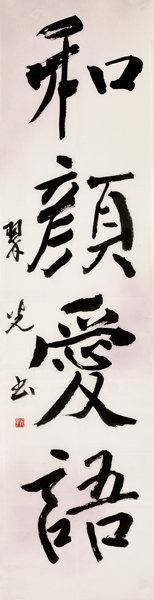 和顔愛語
翠光書